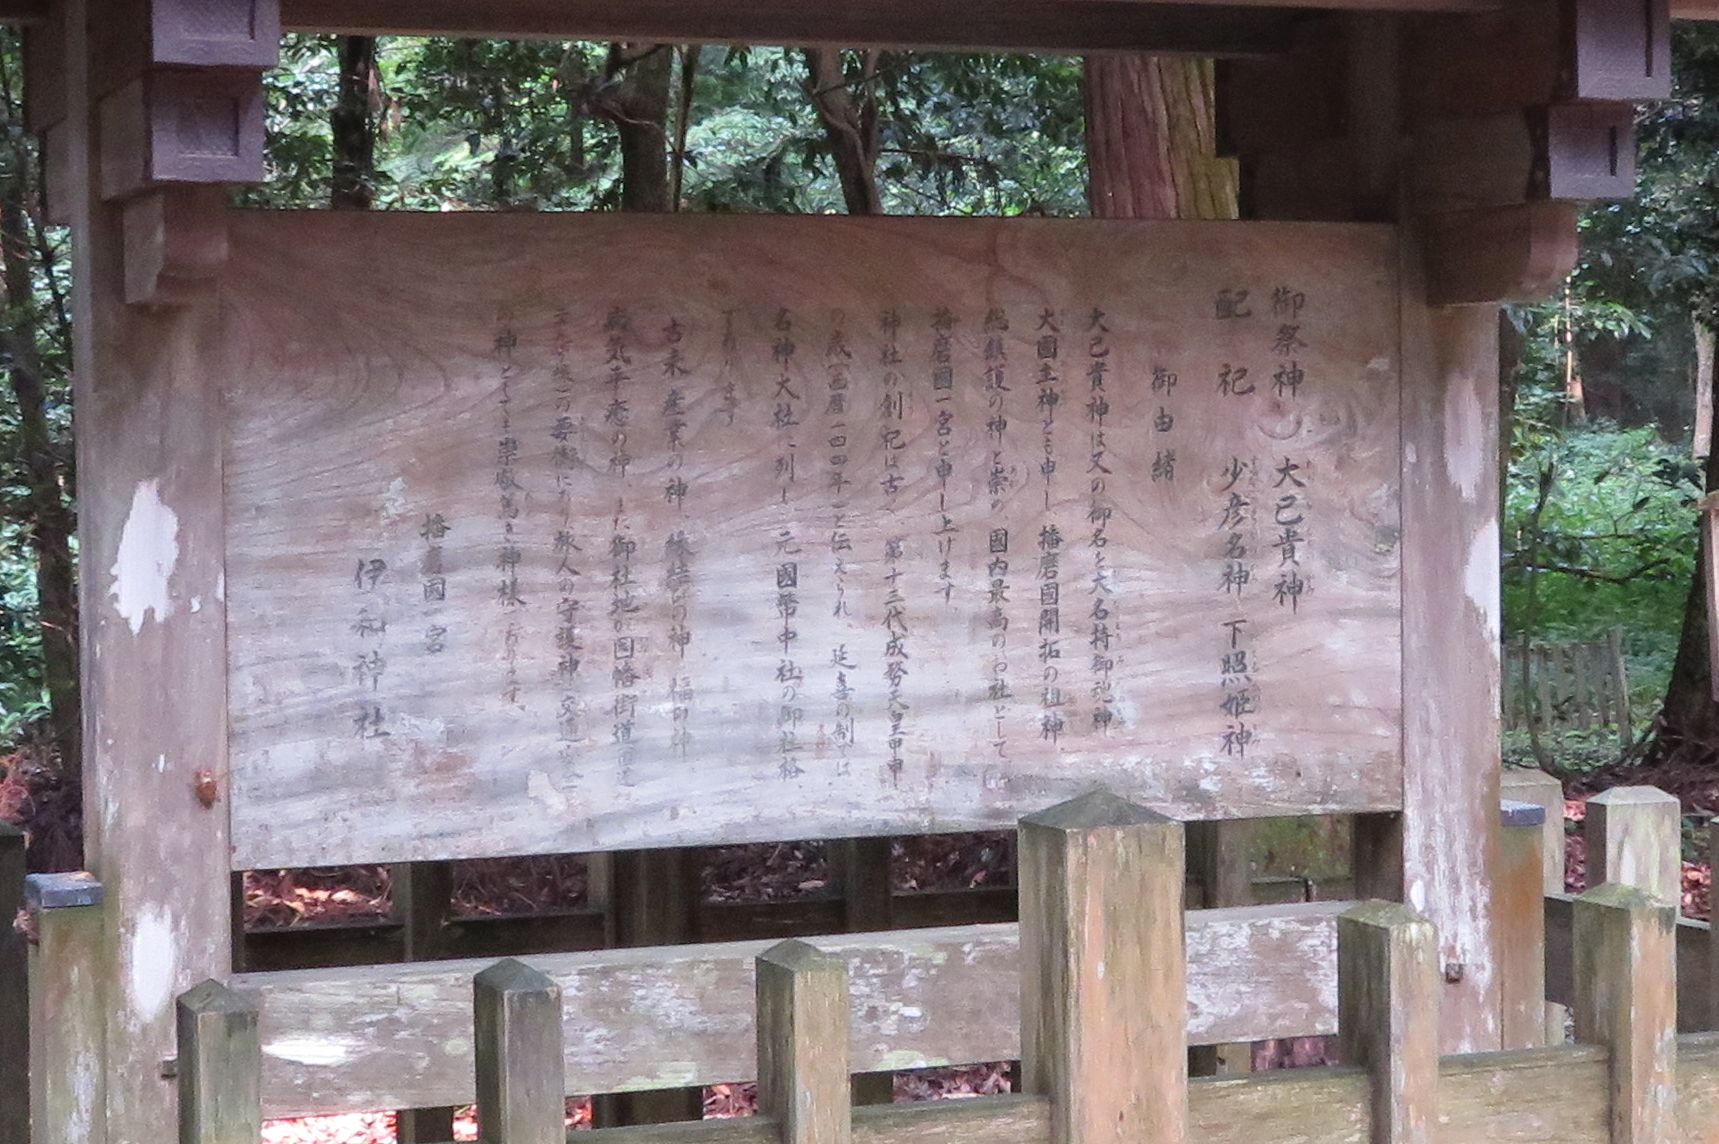 御祭神 大己貴神
配祀 少彦名神 下照姫神
御由緒
大己貴神は又の御名を大名持御祂神
大国主神とも申し 播磨国開拓の祖神
総鎮護の神と崇め 国内最高のお社として
播磨國一宮と申し上げます
神社の創祀は古く、第十三代成務天皇甲申
の歳(西暦一四四年)と伝えられ、延喜の制では
名神大社に列し 元國幣中社の御社格
であります
古来 産業の神、縁結びの神 福の神
病気平癒の神、また御社地が因幡街道
の要衝にあり旅人の守護神 交通安全
の神としても崇敬篤き神様であります。
播磨国一宮
伊和神社